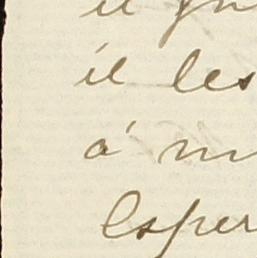 il
il les
à m
Esper